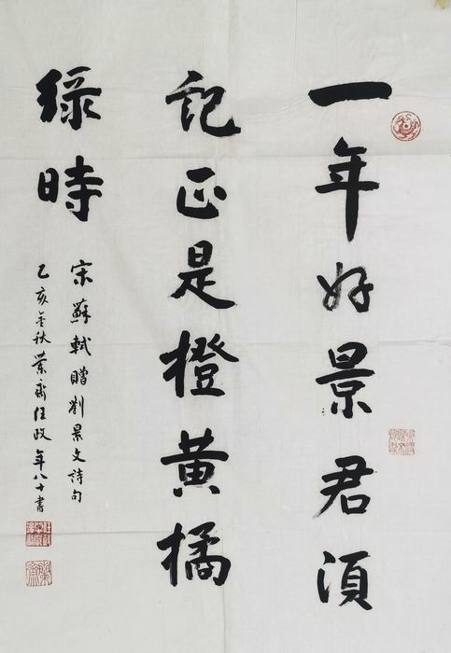 一年好景君須
記正是橙黃橘
綠時
宋蘇軾贈劉景文詩句
乙亥金秋蘭齋任政年八十書